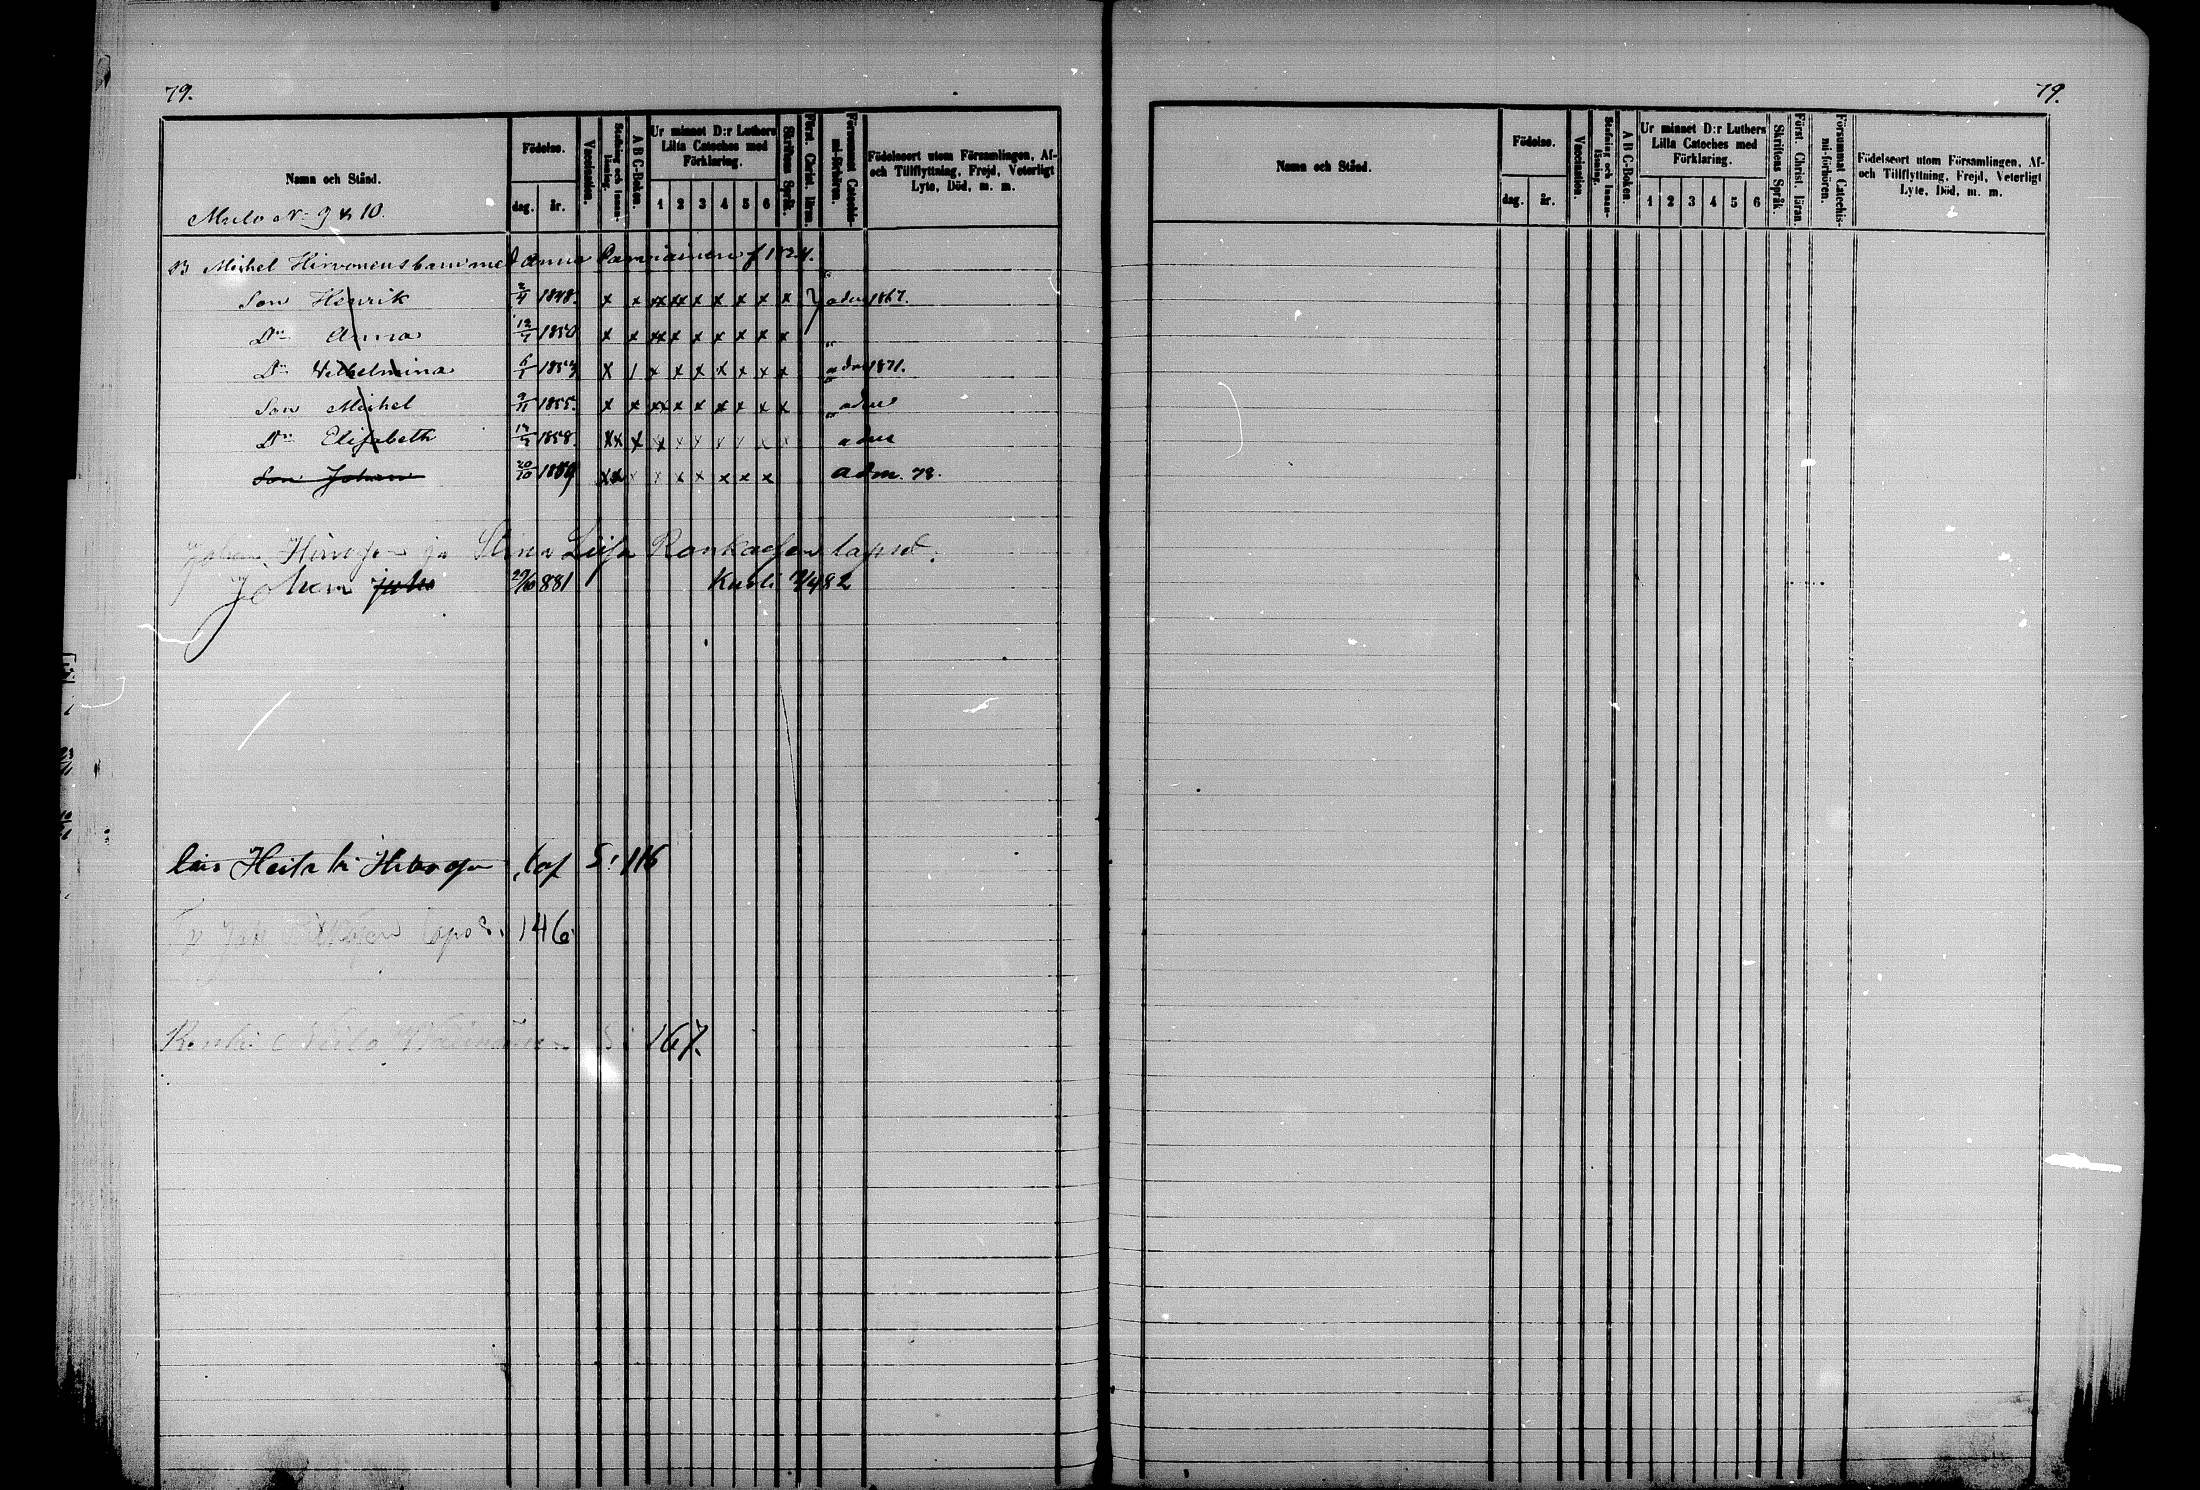 79.
Namn och Stånd.
Födelse.
dag. år.
Vaccination.
Stafning och Innanläsning.
A B C-Boken.
Ur minnet D:r Luthers Lilla Cateches med Förklaring.
1 2 3 4 5 6
Skriftens Språk.
Först. Christ. läran.
Försummat Catechismi-förhören.
Födelseort utom Församlingen, Af- och Tillflyttning, Frejd, Veterligt Lyte, Död, m. m.
Mulo No 9 & 10.
B Michel Hirvonens barn med Anna f 1824.
Son Henrik 2/4 1848. x x xx xx x x x x x adm 1867.
Dr Anna 12/7 1850 x x xx x x x x x x "
Dr Wilhelmina 6/1 1853 x / x x x x x x x adm 1871.
Son Michel 9/11 1855. x x xx x x x x x x adm
Dr Elisabeth 1858. xx x x x x x x x x adm
Son Johan 20/10 1859 xx x x x x x x x adm. 78.
Johan ja Stina Liisa lapset.
Johan Juho 29/10 881 Kuoli 482
Heikki S: 116
146.
167.
79.
Namn och Stånd.
Födelse.
dag. år.
Vaccination.
Stafning och Innanläsning.
A B C-Boken.
Ur minnet D:r Luthers Lilla Cateches med Förklaring.
1 2 3 4 5 6
Skriftens Språk.
Först. Christ. läran.
Försummat Catechismi-förhören.
Födelseort utom Församlingen, Af- och Tillflyttning, Frejd, Veterligt Lyte, Död, m. m.